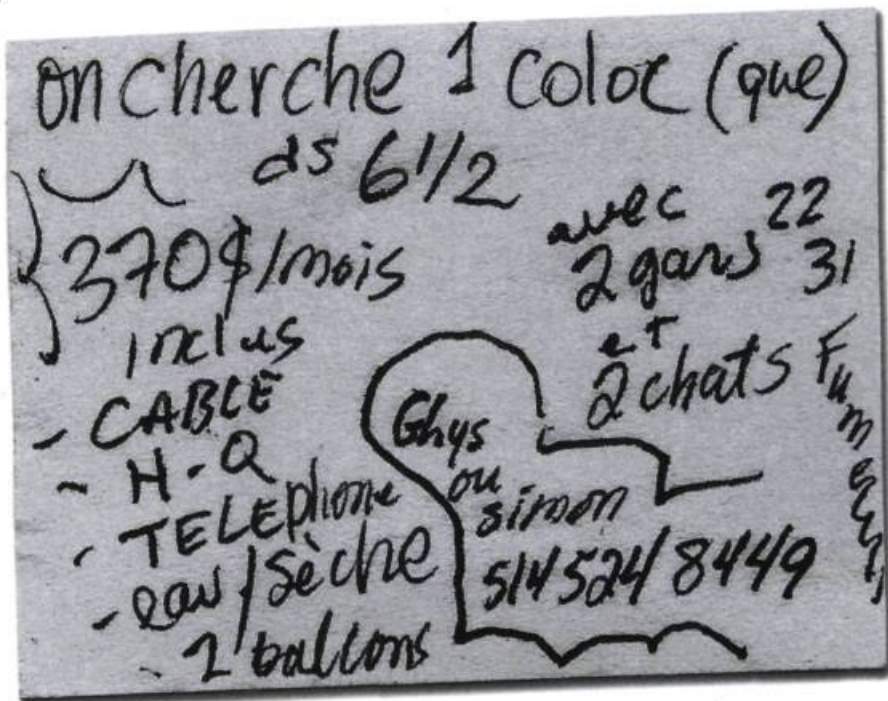 on cherche 1 coloc (que)
ds 6 1/2
370$/mois
inclus
- CABLE
- H-Q
- TELEphone
- eau/sèche
- 2 balcons
avec
2 gars 22
31
et
2 chats
Fumeurs
Ghys
ou
simon
514 524/8449